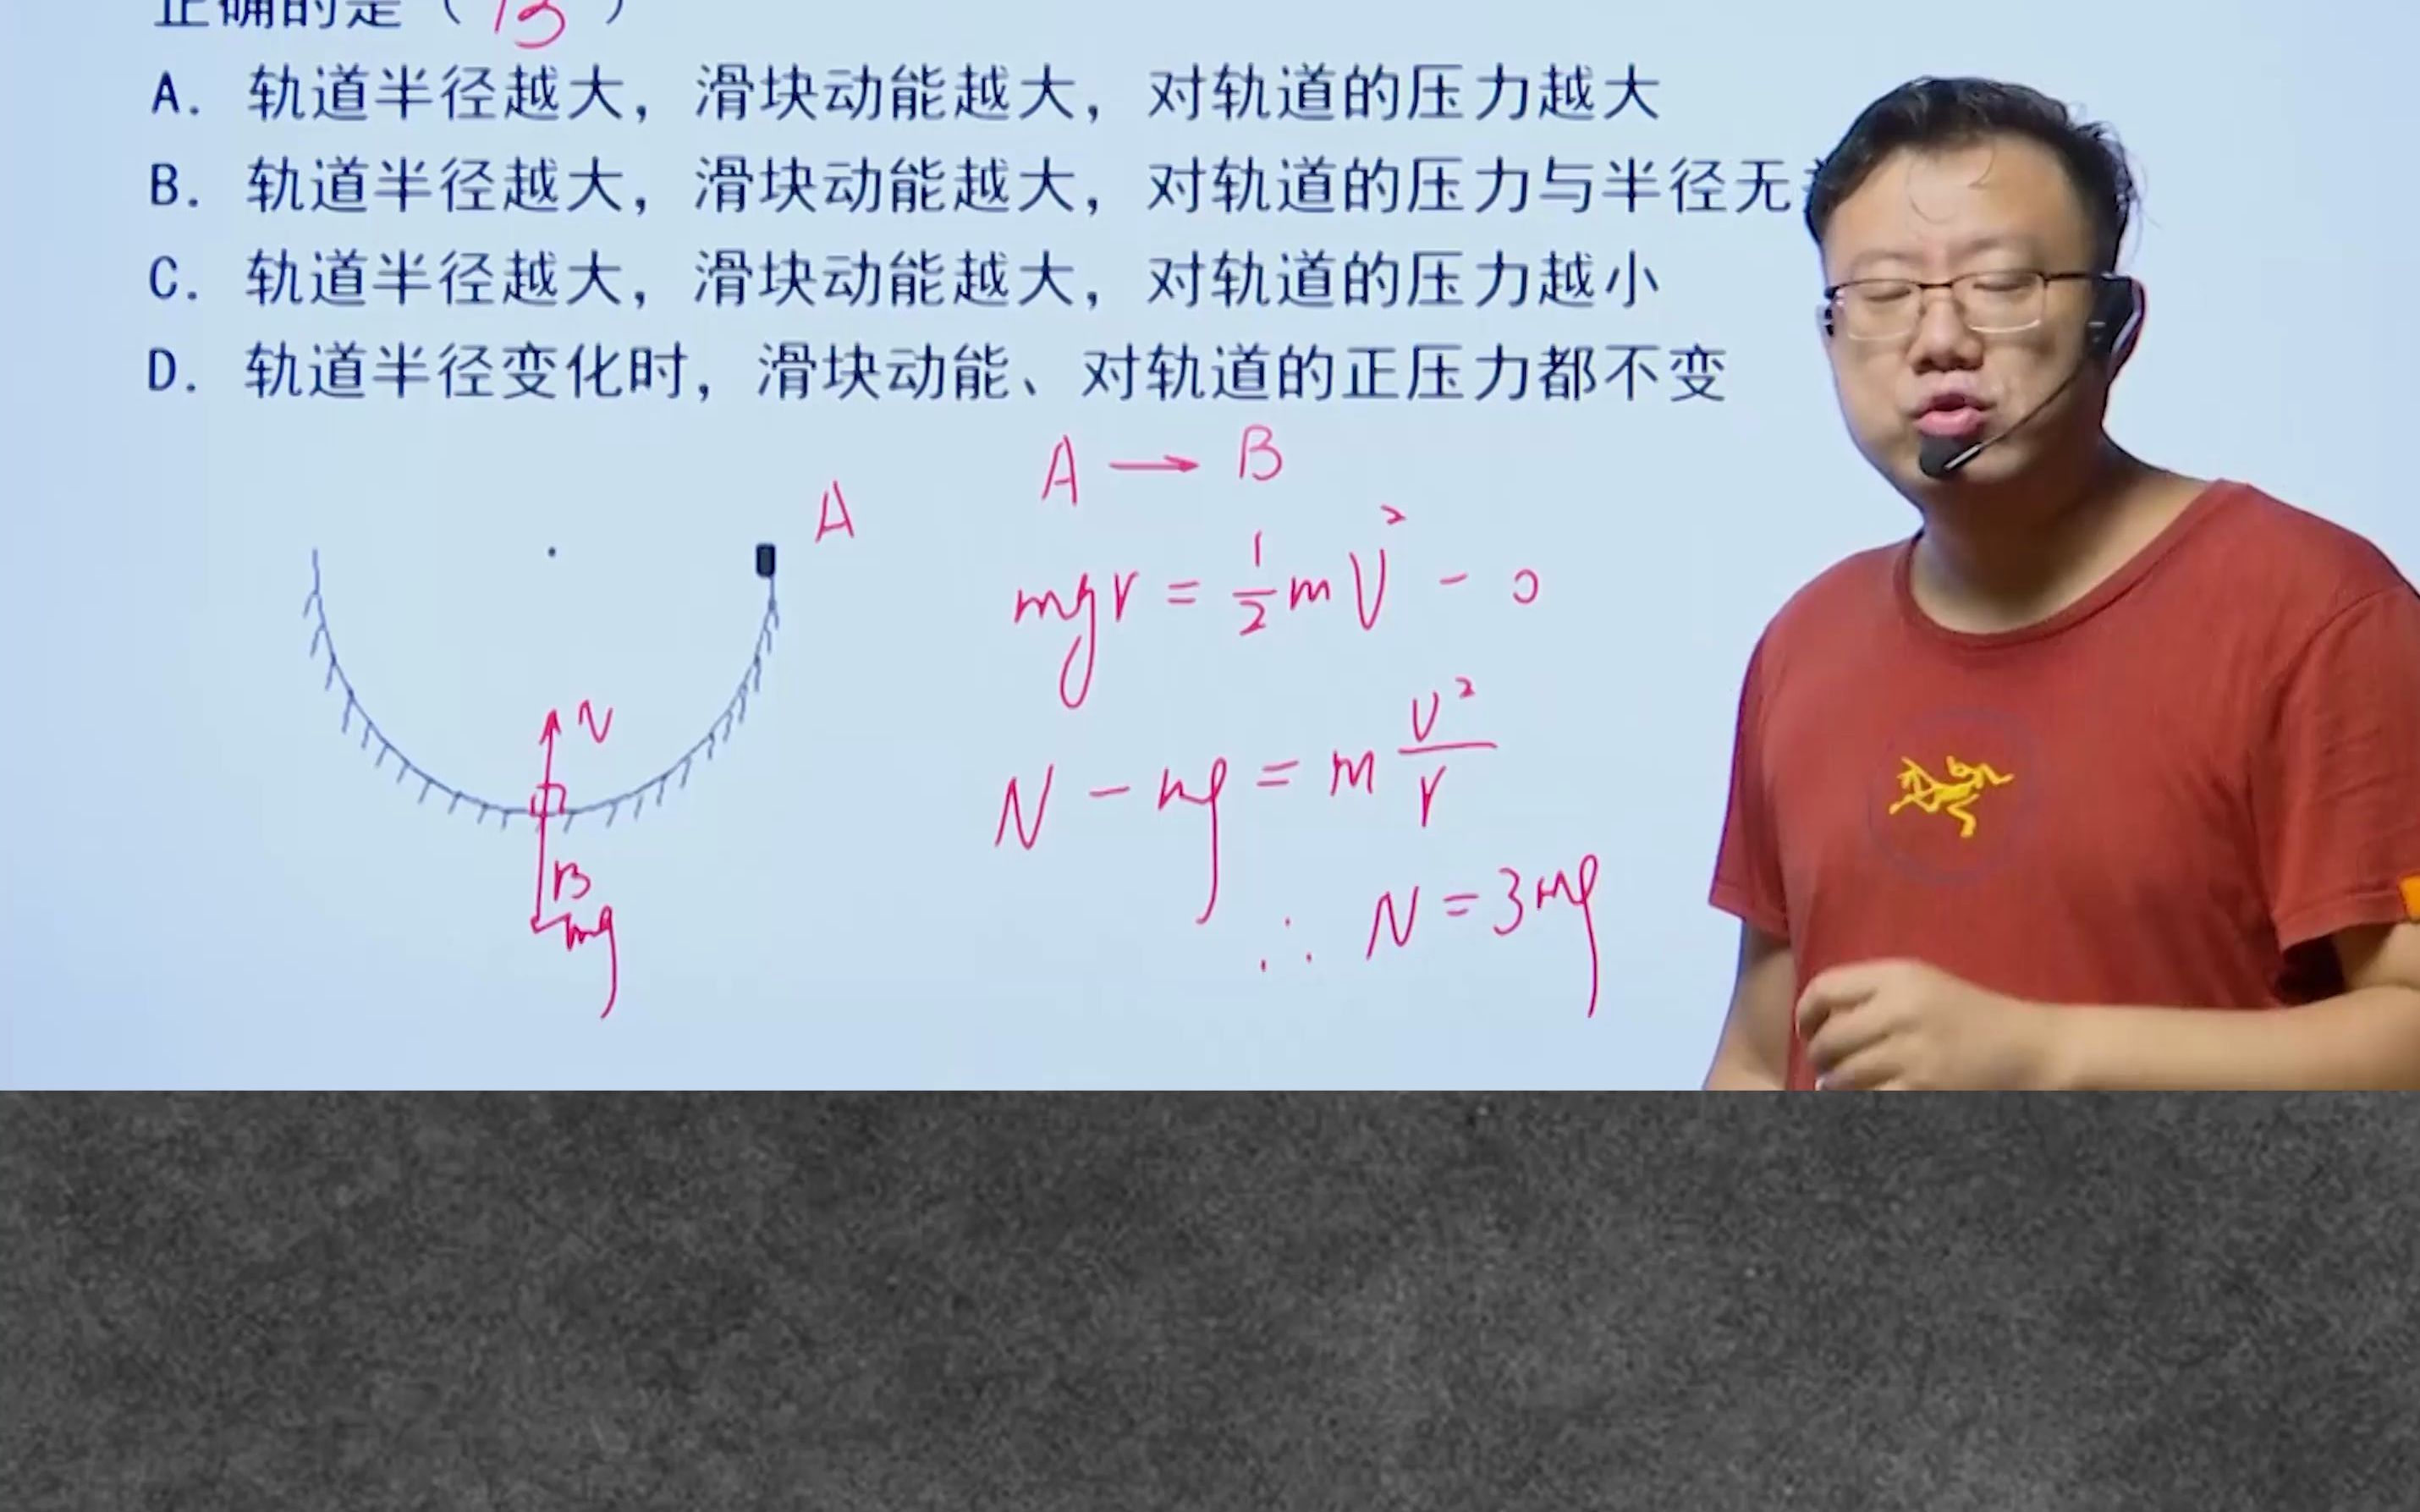 正确的是（ B ）
A. 轨道半径越大，滑块动能越大，对轨道的压力越大
B. 轨道半径越大，滑块动能越大，对轨道的压力与半径无
C. 轨道半径越大，滑块动能越大，对轨道的压力越小
D. 轨道半径变化时，滑块动能、对轨道的正压力都不变
A → B
A
mgr = 1/2 mV² - 0
N
N - mg = m V²/r
B
mg
∴ N = 3mg